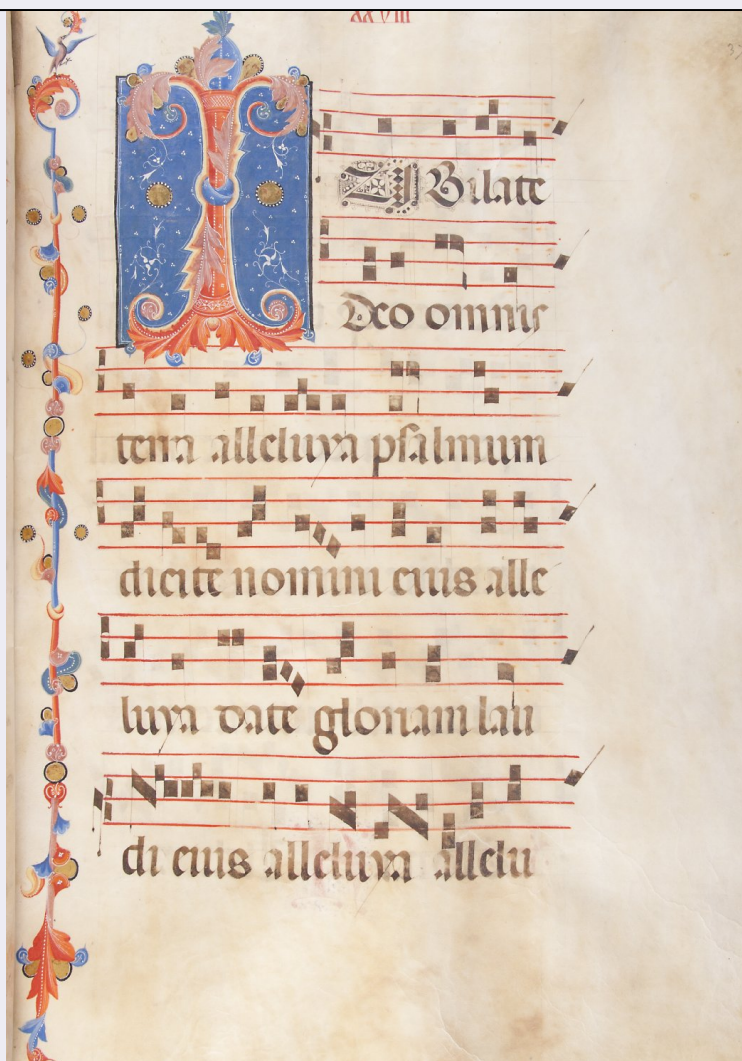 xxviii
IUBilate
Deo omnis
terra alleluya psalmum
dicite nomini eius alle
luya date gloriam lau
di eius alleluya allelu